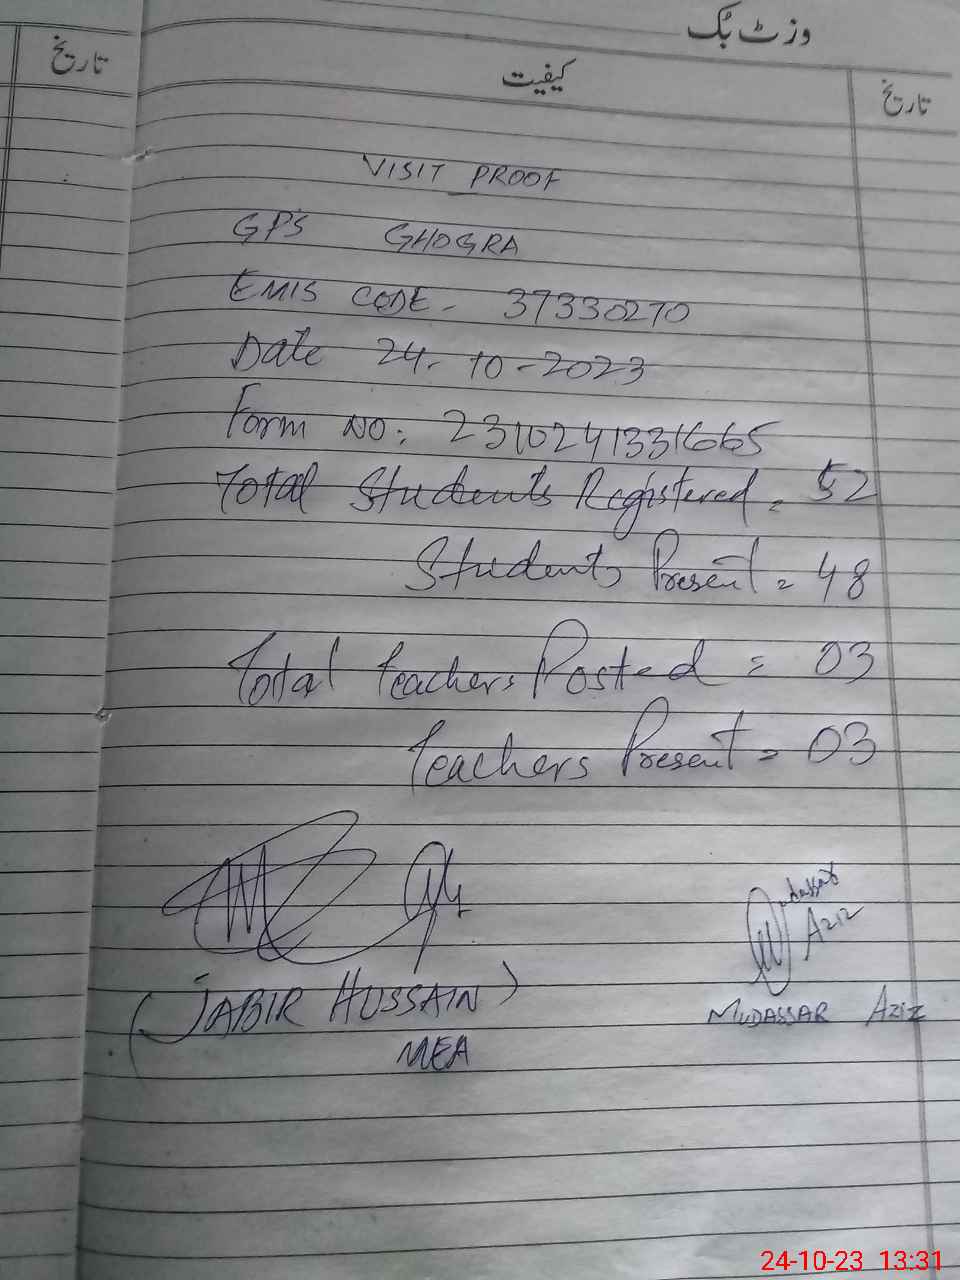 وزٹ بُک
تاریخ
کیفیت
تاریخ
VISIT PROOF
GPS GHOGRA
EMIS CODE - 37330270
Date 24-10-2023
Form NO: 231024133166​5
Total Students Registered = 52
Students Present = 48
Total Teachers Posted = 03
Teachers Present = 03
Mudassar
Aziz
(JABIR HUSSAIN)
MUDASSAR AZIZ
MEA
24-10-23 13:31